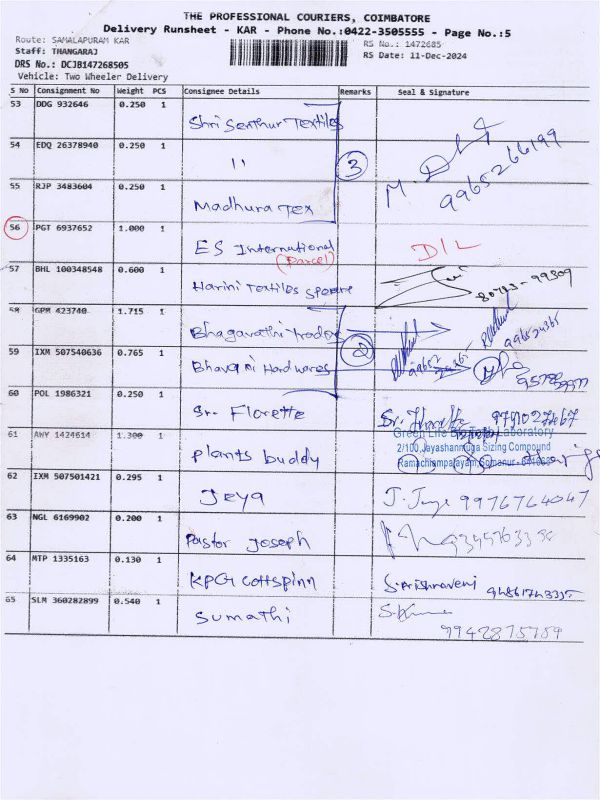 THE PROFESSIONAL COURIERS, COIMBATORE
Delivery Runsheet - KAR - Phone No.:0422-3505555 - Page No.:5
Route: SAMALAPURAM KAR
RS No.: 1472685
Staff: THANGARAJ
RS Date: 11-Dec-2024
DRS No.: DCJB147268505
Vehicle: Two Wheeler Delivery
S No Consignment No Weight PCS Consignee Details Remarks Seal & Signature
53 DDG 932646 0.250 1 Shri Senthur Textiles
54 EDQ 26378940 0.250 1 11 3 9965266199
55 RJP 3483604 0.250 1 Madhura Tex
56 PGT 6937652 1.000 1 ES International D/L
(Parcel)
57 BHL 100348548 0.600 1 Harini Textiles
58 GPM 423740 1.715 1 Bhagavathi
59 IXM 507540636 0.765 1 Bhavani Hardwares 2
60 POL 1986321 0.250 1 Sr. Florette
61 AWY 1424614 1.300 1 plants buddy
Green Life Laboratory
2/100, Jayashanmuga Sizing Compound
Ramachiampalayam, Somanur
62 IXM 507501421 0.295 1 Jeya 9976764047
63 NGL 6169902 0.200 1 Pastor Joseph
64 MTP 1335163 0.130 1 KPG Cottspinn
65 SLM 360282899 0.540 1 Sumathi